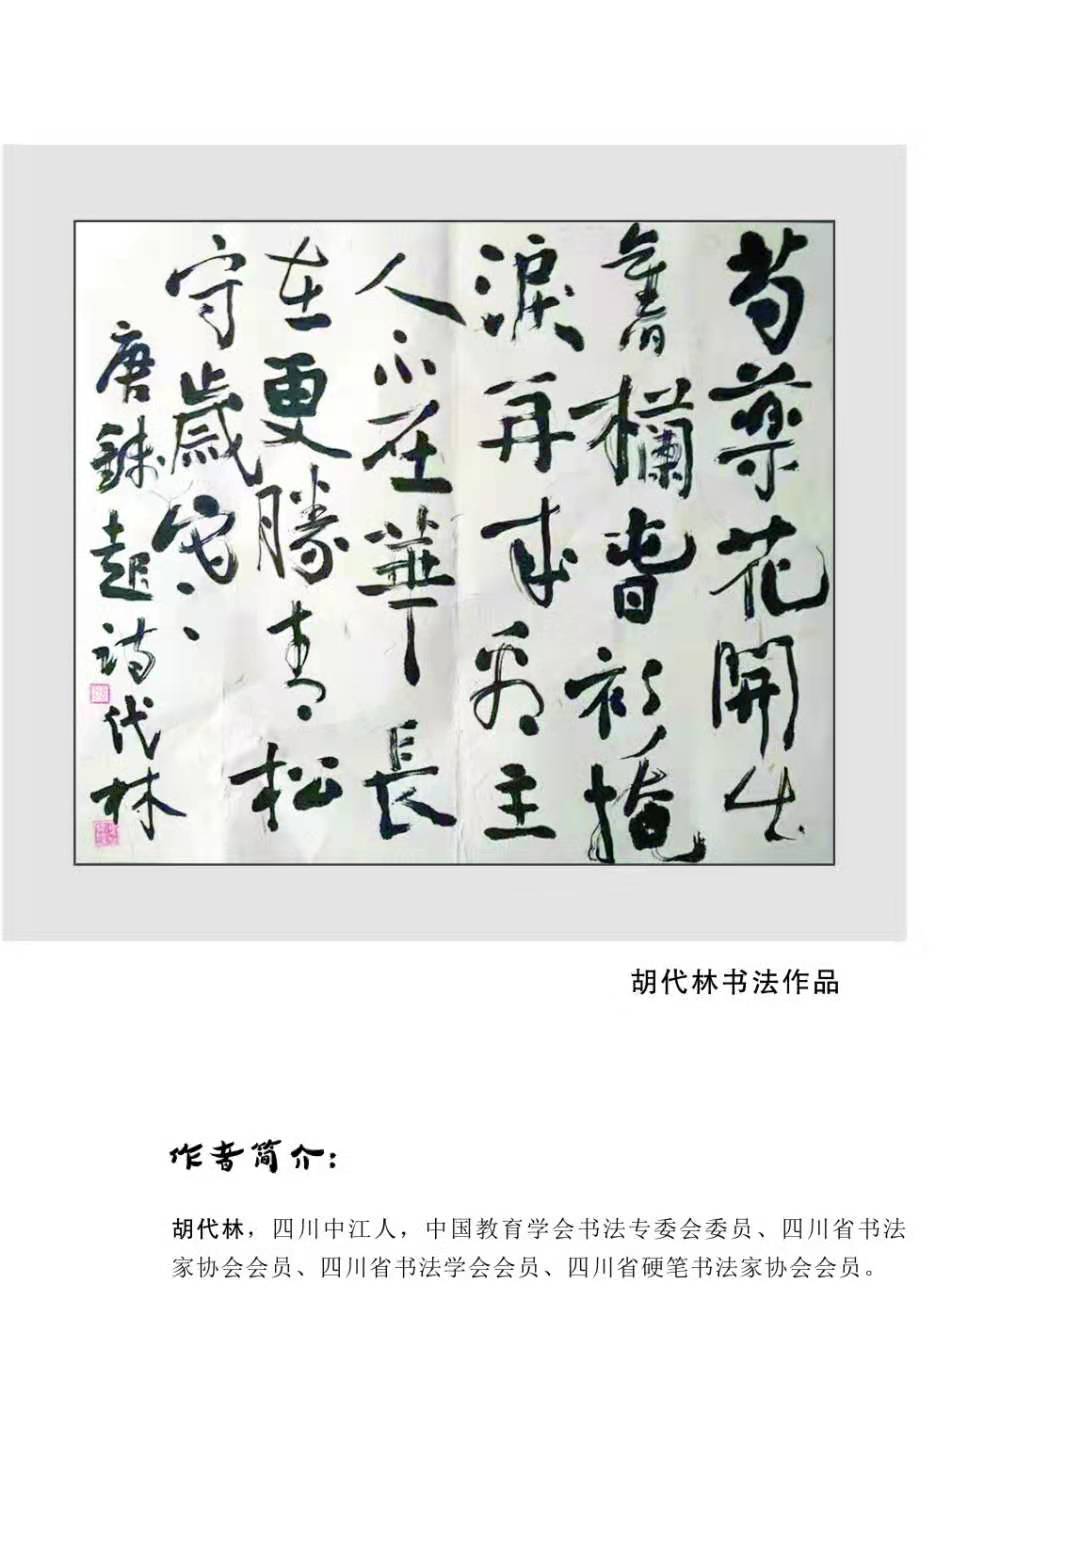 芍藥花開出
舊欄旾衫掩
淚再来看主
人不在華長
在更勝青松
守歲寒
唐錢起詩代林
胡代林书法作品
作者简介：
胡代林，四川中江人，中国教育学会书法专委会委员、四川省书法
家协会会员、四川省书法学会会员、四川省硬笔书法家协会会员。